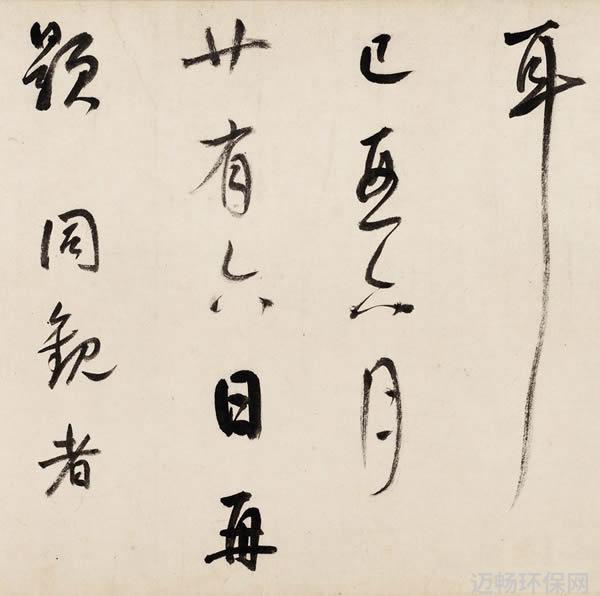 耳
己酉六月
廿有六日再
題 同觀者
迈畅环保网